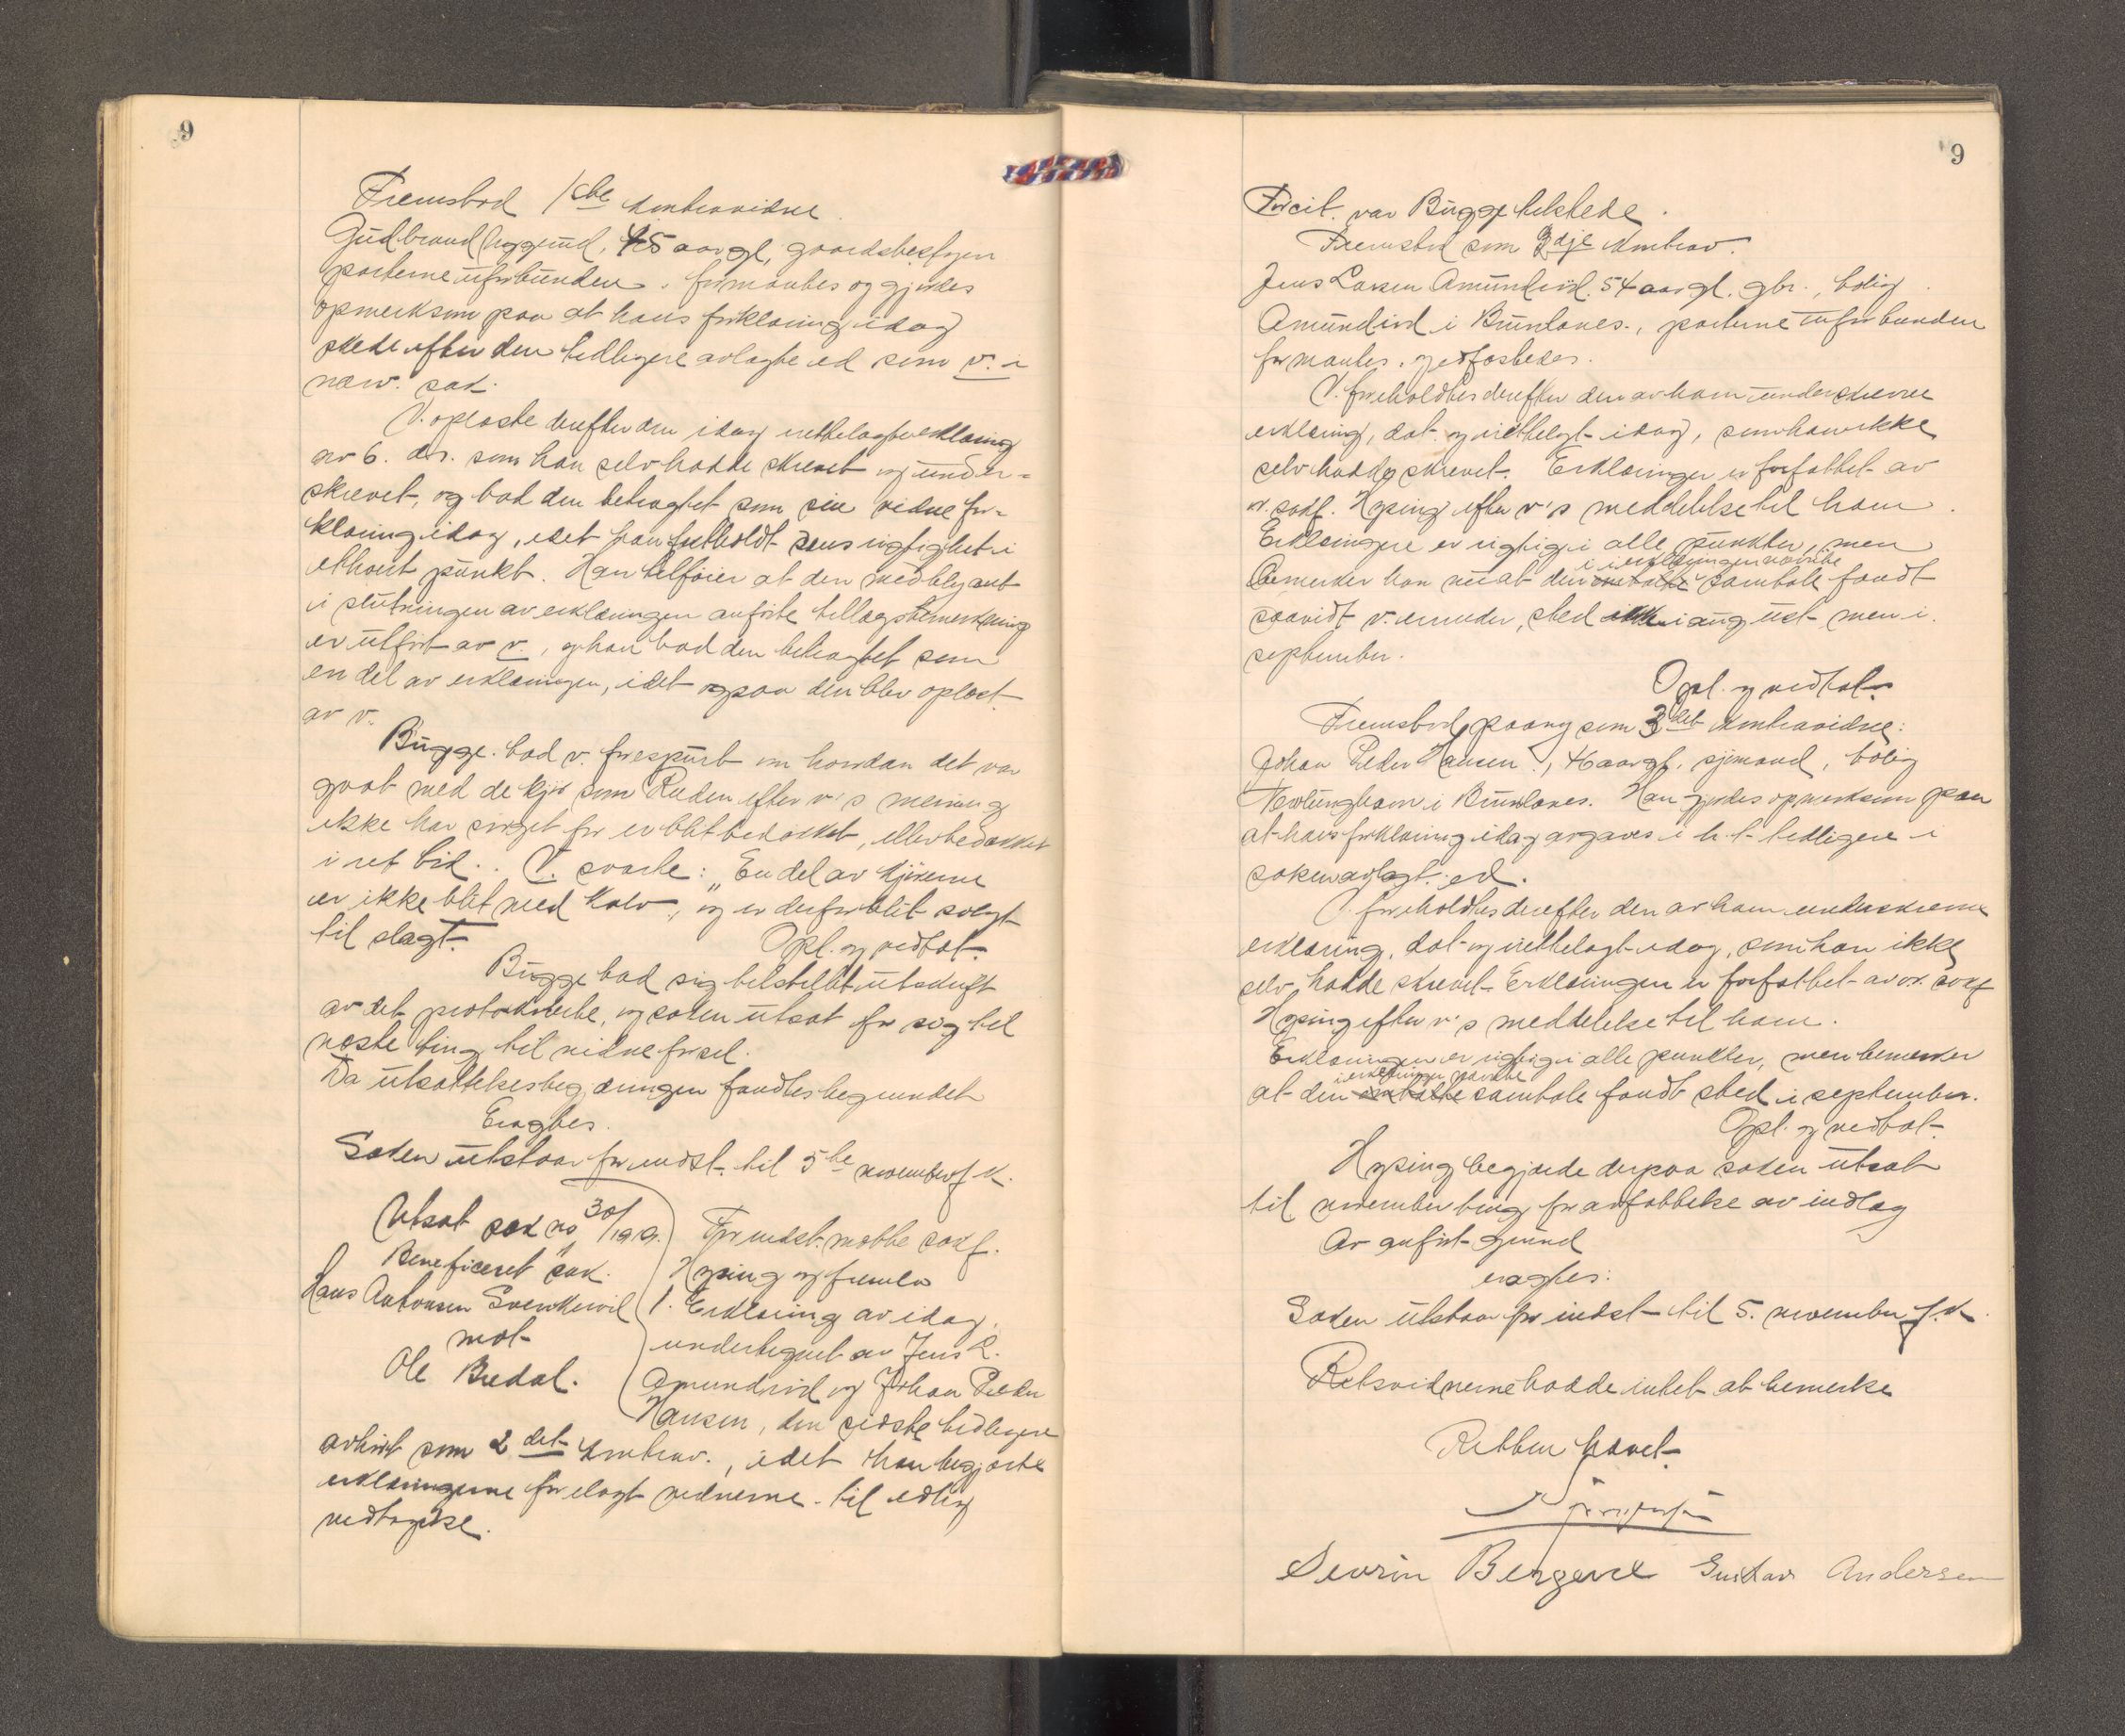 9
Fremstod 1ste kontravidne
Gudbrand Nygaard, 45 aar gl, gaardsbestyrer
parterne uforbunden. formantes og gjordes
opmerksom paa at hans forklaring idag
skede efter den tidligere avlagte ed som v. i
nærv. sak.
V. oplæste derefter den idag rettelagte erklæring
av 6. ds. som han selv hadde skrevet og under-
skrevet, og bad den betragtet som sin vidnefor-
klaring idag, idet han fastholdt dens rigtighet i
ethvert punkt. Han tilføier at den med blyant
i slutningen av erklæringen anførte tillægsbemerkning
er utført av v., og han bad den betragtet som
en del av erklæringen, idet ogsaa den blev oplæst
av v.
Bugge bad v. forespurt om hvordan det var
gaat med de kjør som Ruden efter v's mening
ikke har sørget for er blit bedækket, eller bedækket
i ret tid. V. svarte: "En del av kjørerne
er ikke blit med kalv, og er derfor blit solgt
til slagt. Opl. og vedtat.
Bugge bad sig tilstillet utskrift
av det protokollerte, og saken utsat for sig til
næste ting til vidneførsel.
Da utsættelsesbegjæringen fandtes begrundet
Eragtes.
Saken utstaar for indst. til 5te november f. k.
Utsat sak no 30/1919.
Beneficeret sak.
Hans Antonsen Svenkerud
mot
Ole Bredal.
For indst. møtte sakf.
Hysing og fremla
1. Erklæring av idag,
undertegnet av Jens L.
Amundrød og Johan Peder
Hansen, den sidste tidligere
avhørt som 2det kontrav., idet han begjærte
erklæringerne forelagt vidnerne til edlig
vedtagelse.
9
For cit. var Bugge tilstede.
Fremstod som 3dje kontrav.
Jens Larsen Amundrød, 54 aar gl. gbr., bolig
Amundrød i Brunlanes., parterne uforbunden
formantes og edfæstedes.
V. foreholdtes derefter den av ham underskrevne
erklæring, dat. og rettelagt idag, som han ikke
selv hadde skrevet. Erklæringen er forfattet av
o.r. sakf. Hysing efter v's meddelelse til ham.
Erklæringen er rigtig i alle punkter, men
bemerker han nu at den i erklæringen nævnte samtale fandt
saavidt v. erindrer, sted ikke i august men i
september.
Opl. og vedtat.
Fremstod paany som 3det kontravidne:
Johan Peder Hansen, aar gl. sjømand, bolig
i Brunlanes. Han gjordes opmerksom paa
at hans forklaring idag avgaves i h. t. tidligere i
saken avlagt ed.
V. foreholdtes derefter den av ham underskrevne
erklæring, dat. og rettelagt idag, som han ikke
selv hadde skrevet. Erklæringen er forfattet av o.r. sakf
Hysing efter v's meddelelse til ham.
Erklæringen er rigtig i alle punkter, men bemerker
at den i erklæringen nævnte samtale fandt sted i september.
Opl. og vedtat.
Hysing begjærde derpaa saken utsat
til november ting for avfattelse av indlæg
Av anført grund
eragtes:
Saken utstaar for indst. til 5. november f. k.
Retsvidnerne hadde intet at bemerke
Retten hævet.
Sevrin Bergerve Gustav Andersen